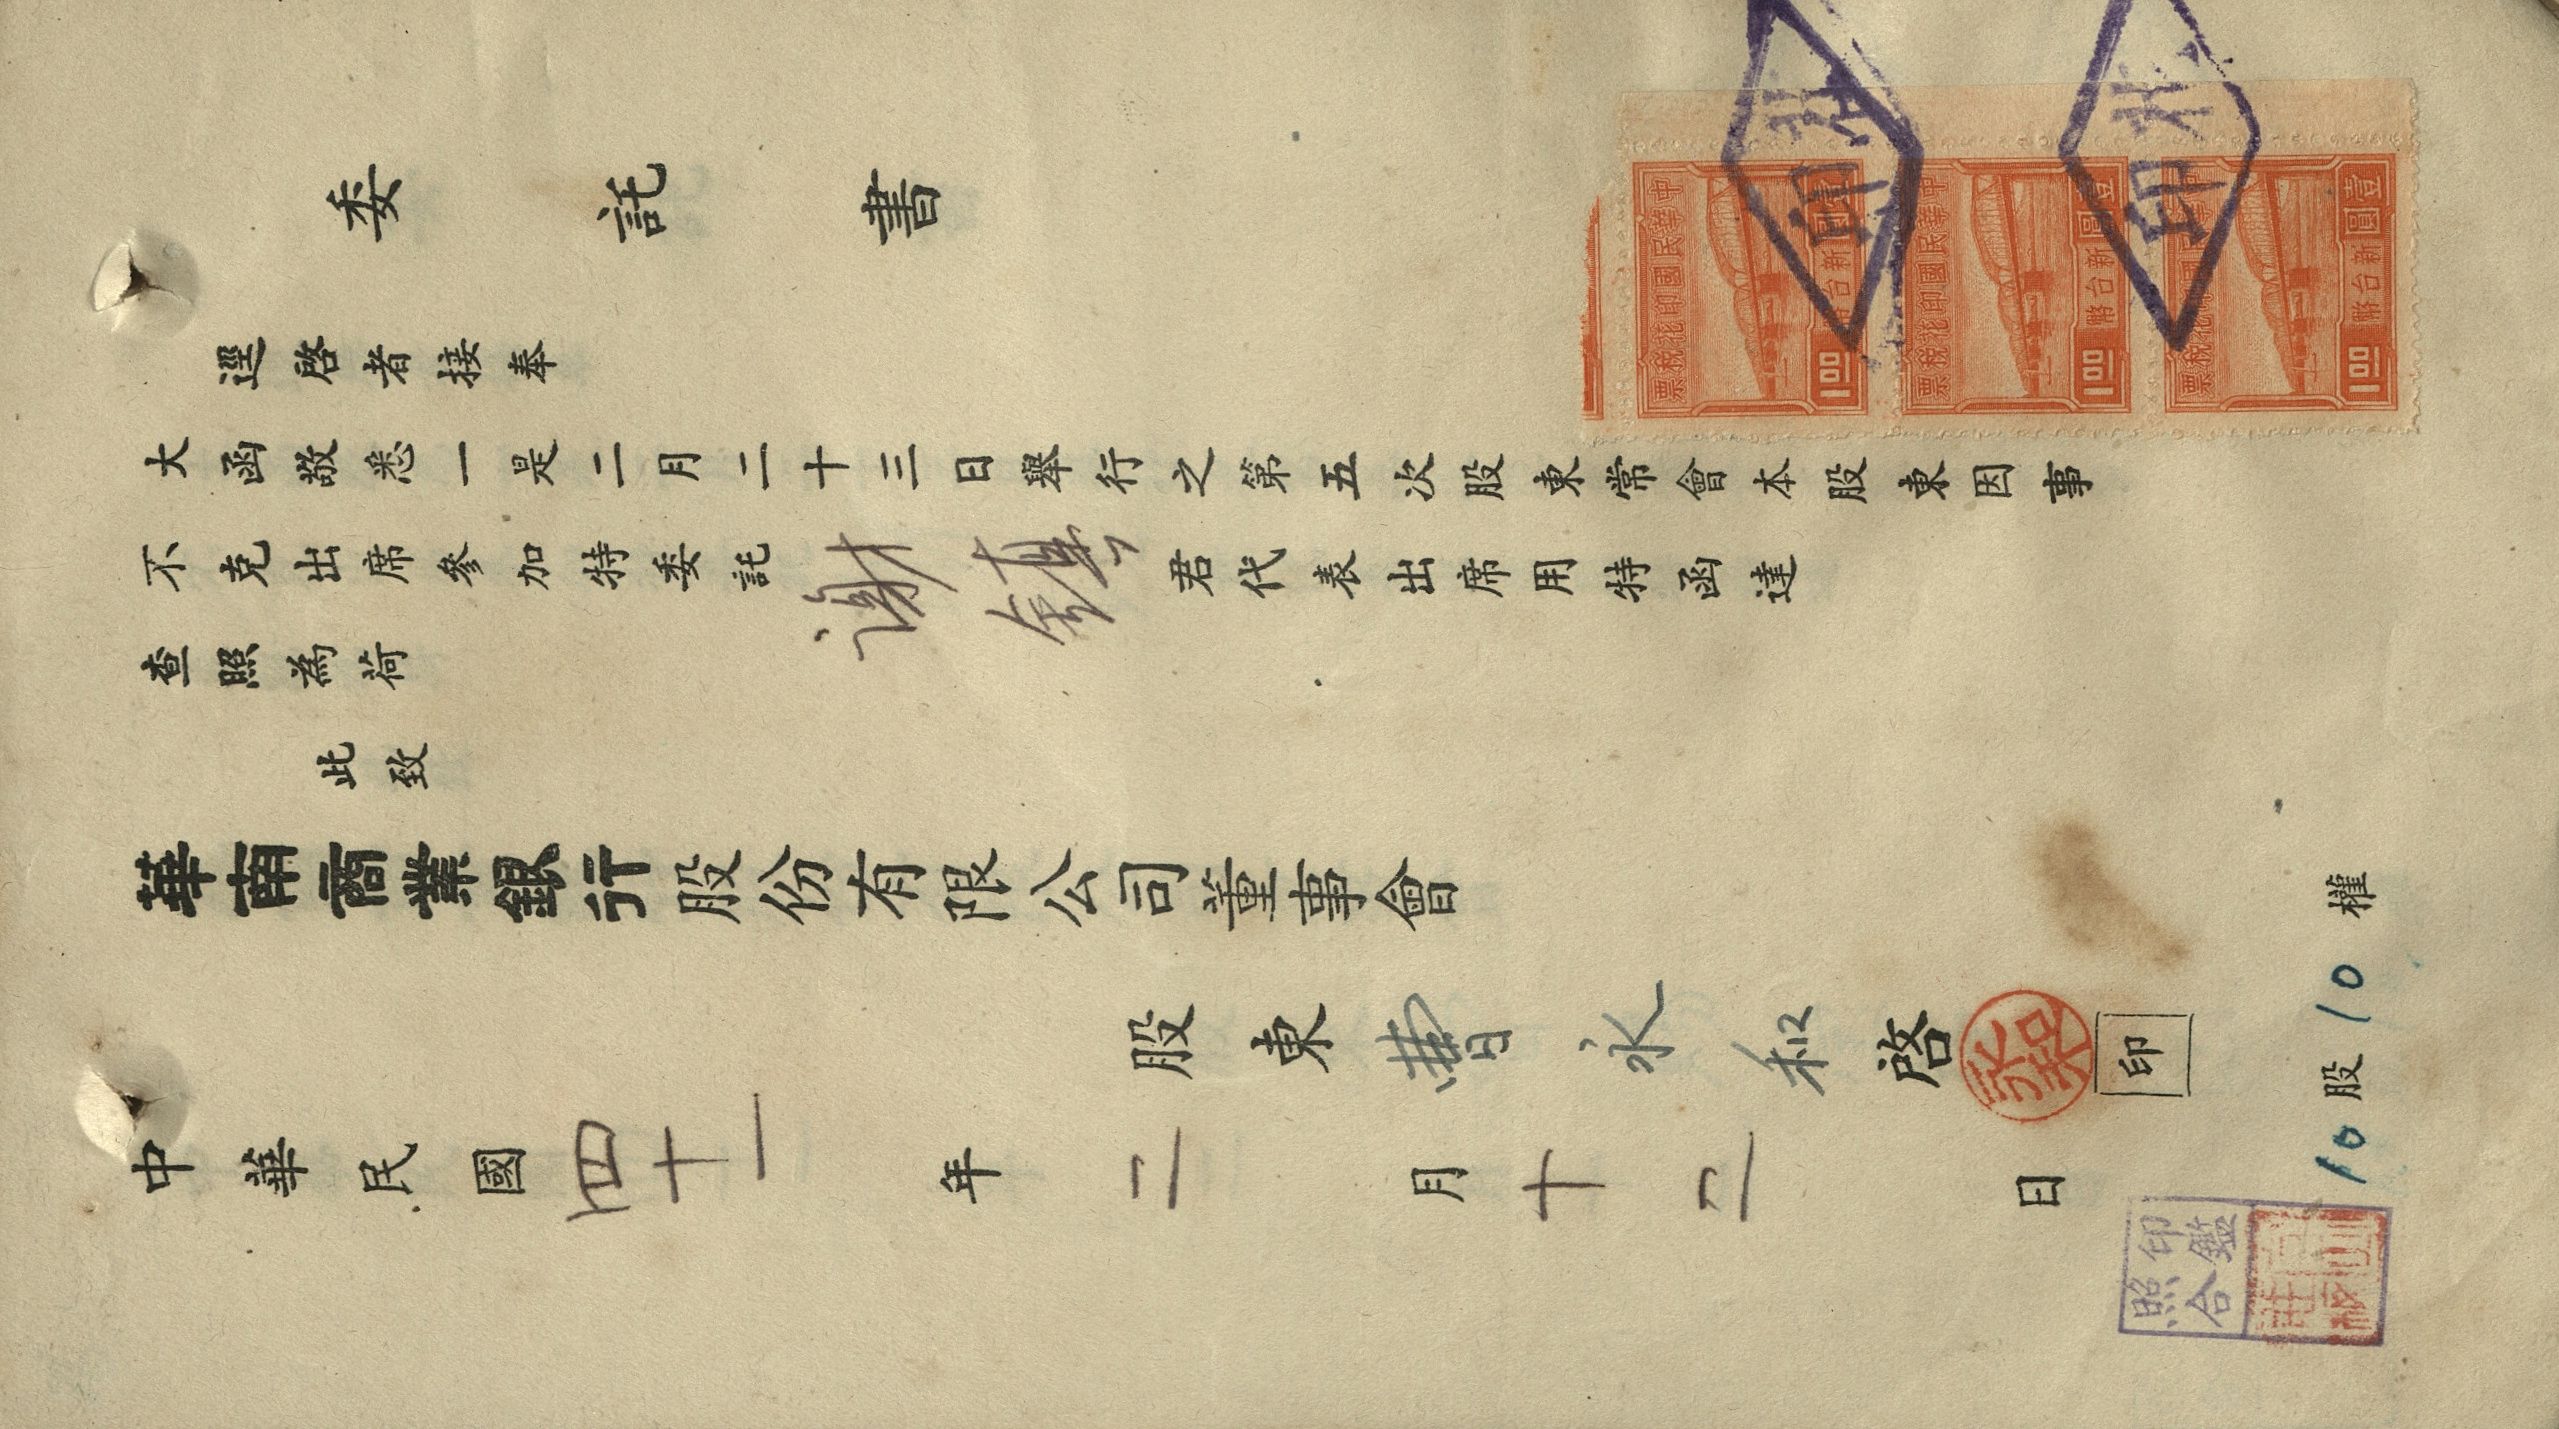 委託書
逕啓者接奉
大函敬悉一是二月二十三日舉行之第五次股東常會本股東因事
不克出席參加特委託謝 君代表出席用特函達
查照為荷
此致
華南商業銀行股份有限公司董事會
股東曹永和啓
永和
印
中華民國四十一年二月十二日
10股10權
印鑑
照合
中華民國印花稅票
壹圓
新台幣
1.00
中華民國印花稅票
壹圓
新台幣
1.00
中華民國印花稅票
壹圓
新台幣
1.00